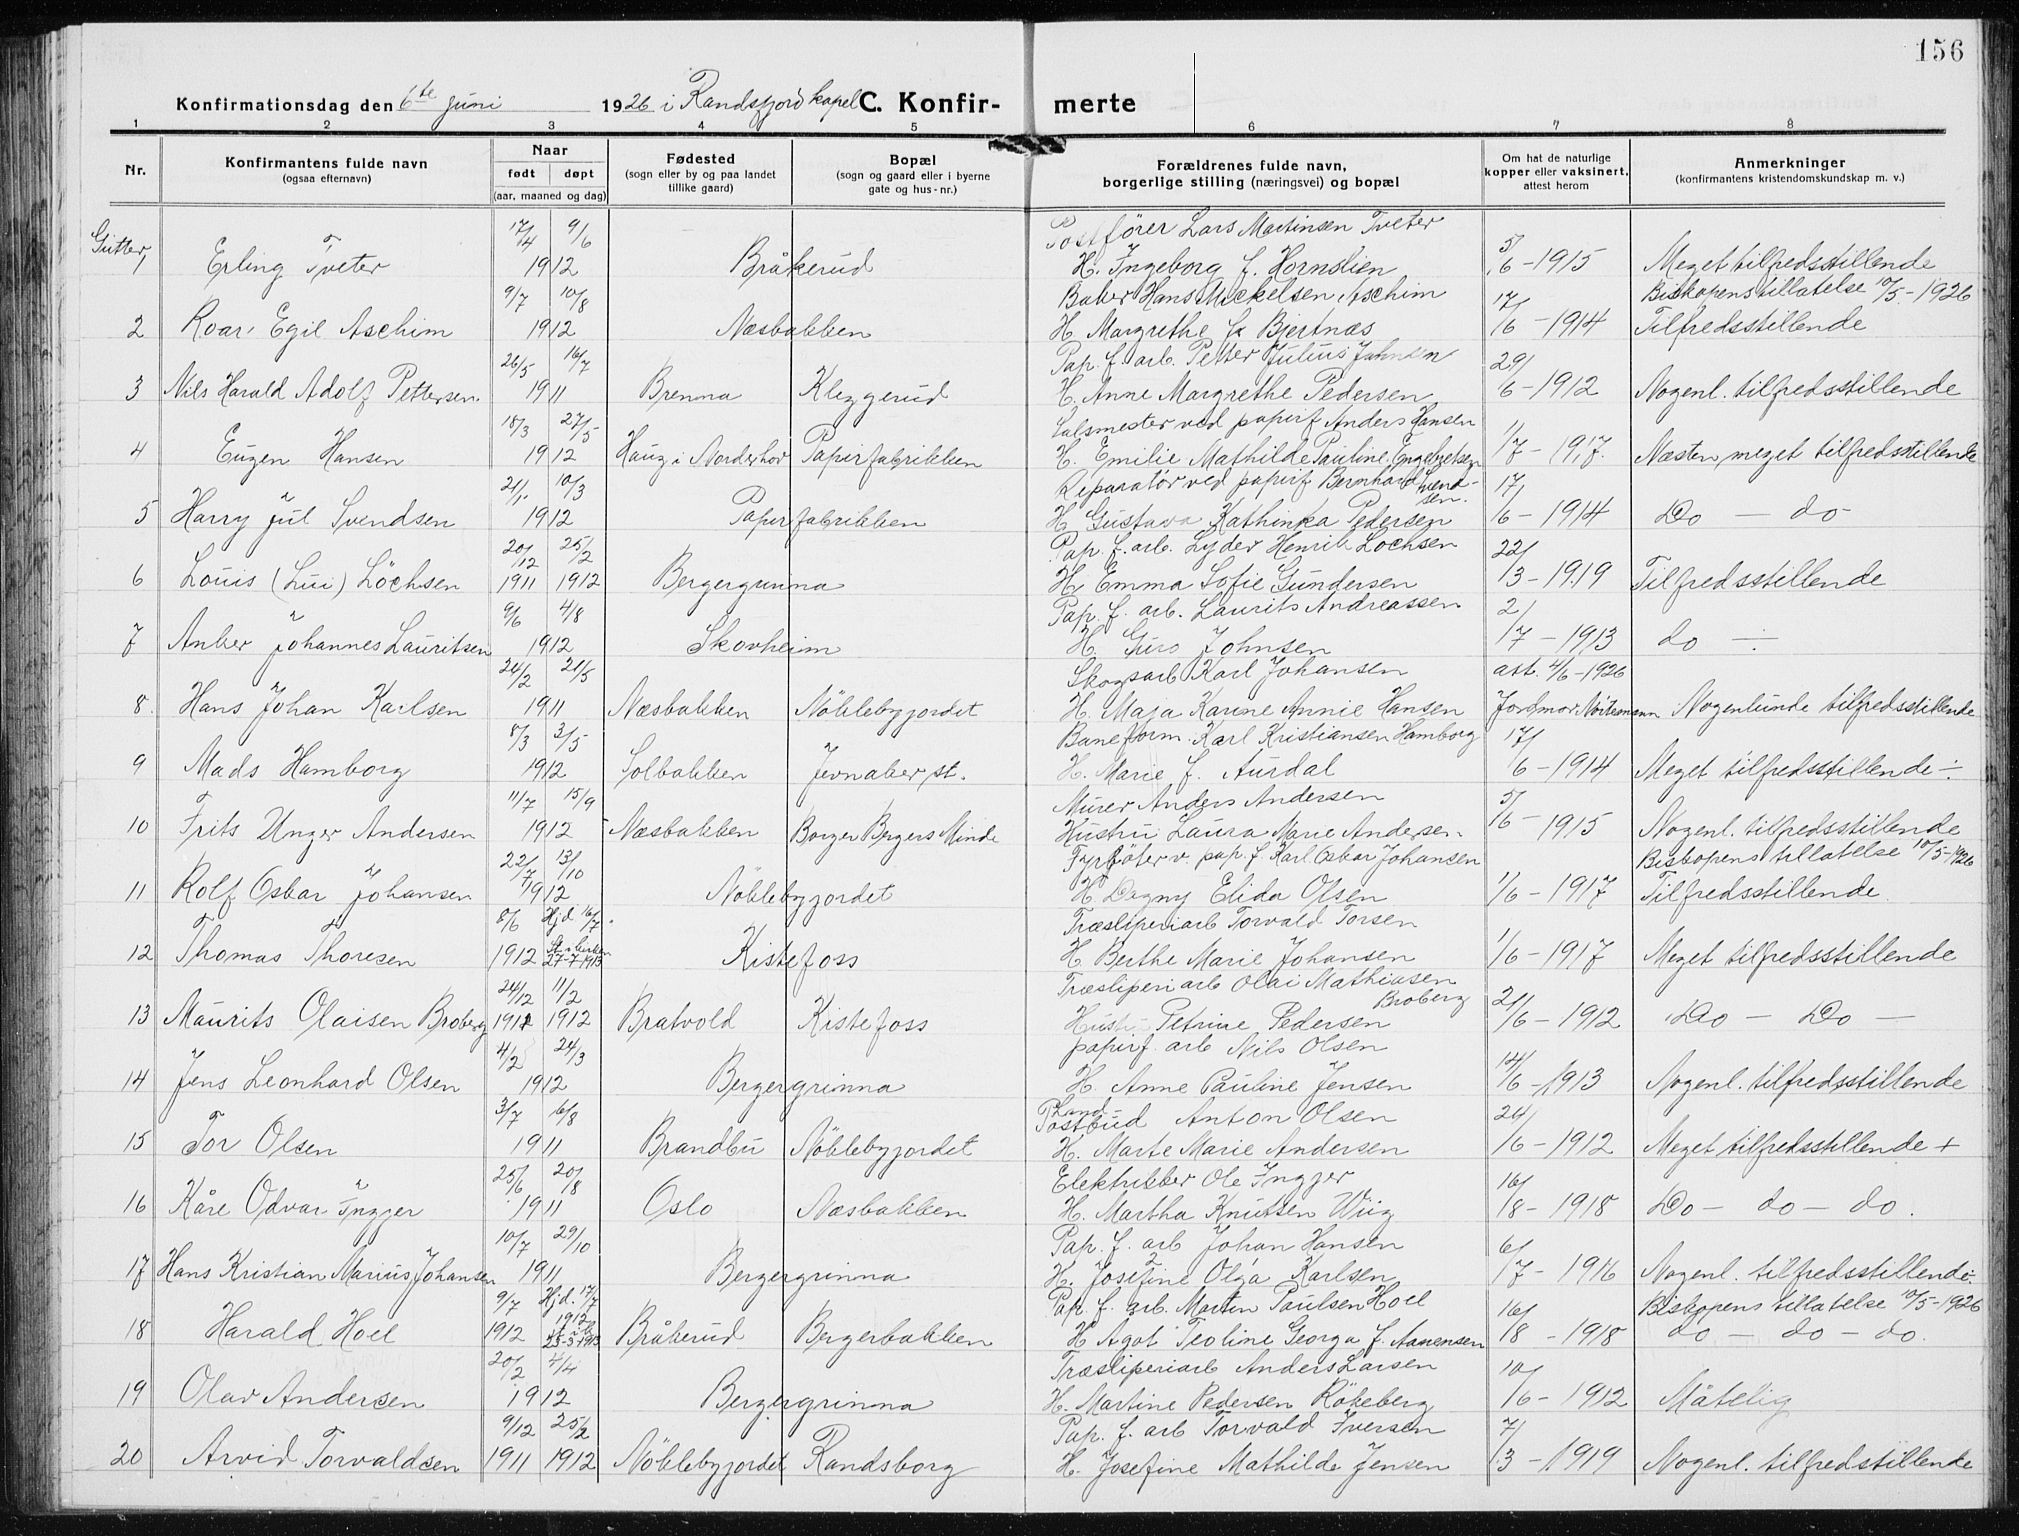 156
Konfirmationsdag den 6te juni 1926 i Randsfjord kapel C. Konfir- merte
1 2 3 4 5 6 7 8
Nr. Konfirmantens fulde navn (ogsaa efternavn) Naar født døpt (aar, maaned og dag) Fødested (sogn eller by og paa landet tillike gaard) Bopæl (sogn og gaard eller i byerne gate og hus-nr.) Forældrenes fulde navn, borgerlige stilling (næringsvei) og bopæl Om hat de naturlige kopper eller vaksinert, attest herom Anmerkninger (konfirmantens kristendomskundskap m. v.)
Gutter
17/4 9/6 Postfører Lars Martinsen Tveter 5/
1 Erling Tveter 1912 Bråkerud H. Ingeborg f. Hornslien 6-1915 Meget tilfredsstillende
9/7 10/8 Baker Hans Mickelsen Aschim 17/ Biskopens tillatelse 10/5-1926
2 Roar Egil Aschim 1912 Næsbakken H Margrethe f. Bjertnæs 6-1914 Tilfredsstillende
26/5 16/7 Pap. f. arb. Petter Julius Johnsen 29/
3 Nils Harald Adolf Pettersen 1911 Brenna Kleggerud H. Anne Margrethe Pedersen 6-1912 Nogenl. tilfredsstillende
18/3 27/5 Salsmester ved papirf Anders Hansen 1/
4 Eugen Hansen 1912 Haug i Norderhov Papirfabrikken H. Emilie Mathilde Pauline Engebretsen 7-1917. Næsten meget tilfredsstillende
21/1 10/3 Reparatør ved papirf Bernhard Svendsen. 17/
5 Harry Jul Svendsen 1912 Papirfabrikken H Gustava Kathinka Pedersen 6-1914 Do — do
20/12 25/2 Pap. f. arb. Lyder Henrik Lochsen 22/
6 Louis (Lui) Löchsen 1911 1912 Bergergrinna H Emma Sofie Gundersen 3-1919 Tilfredsstillende
9/6 4/8 Pap. f. arb. Laurits Andreassen 2/
7 Anker Johannes Lauritsen 1912 Skovheim H. Guro Johnsen 7-1913 do ÷
24/2 21/5 Skogsarb Karl Johansen att. 4/6-1926
8. Hans Johan Karlsen 1911 Næsbakken Nöklebyjordet H. Maja Karine Annie Hansen Jordmor Nogenlunde tilfredsstillende
8/3 3/5 Baneform. Karl Kristiansen Hamborg 17/
9 Mads Hamborg 1912 Solbakken Jevnaker st. H. Marie f. Aurdal 6-1914 Meget tilfredsstillende ÷
11/7 15/9 Murer Anders Andersen 5/
10 Frits Unger Andersen 1912 Næsbakken Borger Bergers Minde Hustru Laura Marie Andersen. 6-1915 Nogenl. tilfredsstillende
22/7 13/10 Fyrböter v. pap. f. Karl Oskar Johansen Biskopens tillatelse 10/5-1926
11 Rolf Oskar Johansen 1912 Nöklebyjordet H. Dagny Elida Olsen 1/6-1917 Tilfredsstillende.
8/6 Hjd 16/7 Træsliperiarb Torvald Torsen
12 Thomas Thoresen 1912 St. i kirken 27-7-1913 Kistefoss H Berthe Marie Johansen 1/6-1917 Meget tilfredsstillende
24/12 11/2 Træsliperiarb Olai Mathiasen Broberg
13 Maurits Olaisen Broberg 1911 1912 Bratvold Kistefoss Hustr. Petrine Pedersen 21/6-1912 Do — Do —
4/2 24/3 papirf. arb Nils Olsen
14 Jens Leonhard Olsen 1912 Bergergrinna H. Anne Pauline Jensen 14/6-1913 Nogenl. tilfredsstillende
3/7 6/8 Land-Postbud Anton Olsen
15 Tor Olsen 1911 Brandbu Nöklebyjordet H. Marte Marie Andersen 24/6-1912 Meget tilfredsstillende +
25/6 20/8 Elektrikker Ole Ingjer
16 Kåre Odvar Ingjer 1911 Oslo Næsbakken H. Martha Knutsen Wiig 16/8-1918 Do — do — do.
10/7 29/10 Pap. f. arb Johan Hansen
17 Hans Kristian Marius Johansen 1911 Bergergrinna H. Josefine Olga Karlsen 6/7-1916 Nogenl. tilfredsstillende ÷
9/7 Hjd. 17/7 1912 Pap. f. arb. Martin Paulsen Hoel Biskopens tillatelse 10/5-1926
18 Harald Hoel 1912 23-3-1913 Bråkerud Bergerbakken H Agot Teoline Georga f. Aanensen 16/8-1918 do — do — do.
20/2 4/4 Træsliperiarb Anders Larsen
19 Olav Andersen 1912 Bergergrinna H. Martine Pedersen Rökeberg 10/6-1912 Måtelig
9/12 25/2 Pap. f. arb Torvald Iversen
20 Arvid Torvaldsen 1911 1912 Nöklebyjordet Randsborg H. Josefine Mathilde Jensen 7/3-1919 Nogenl. tilfredstillende